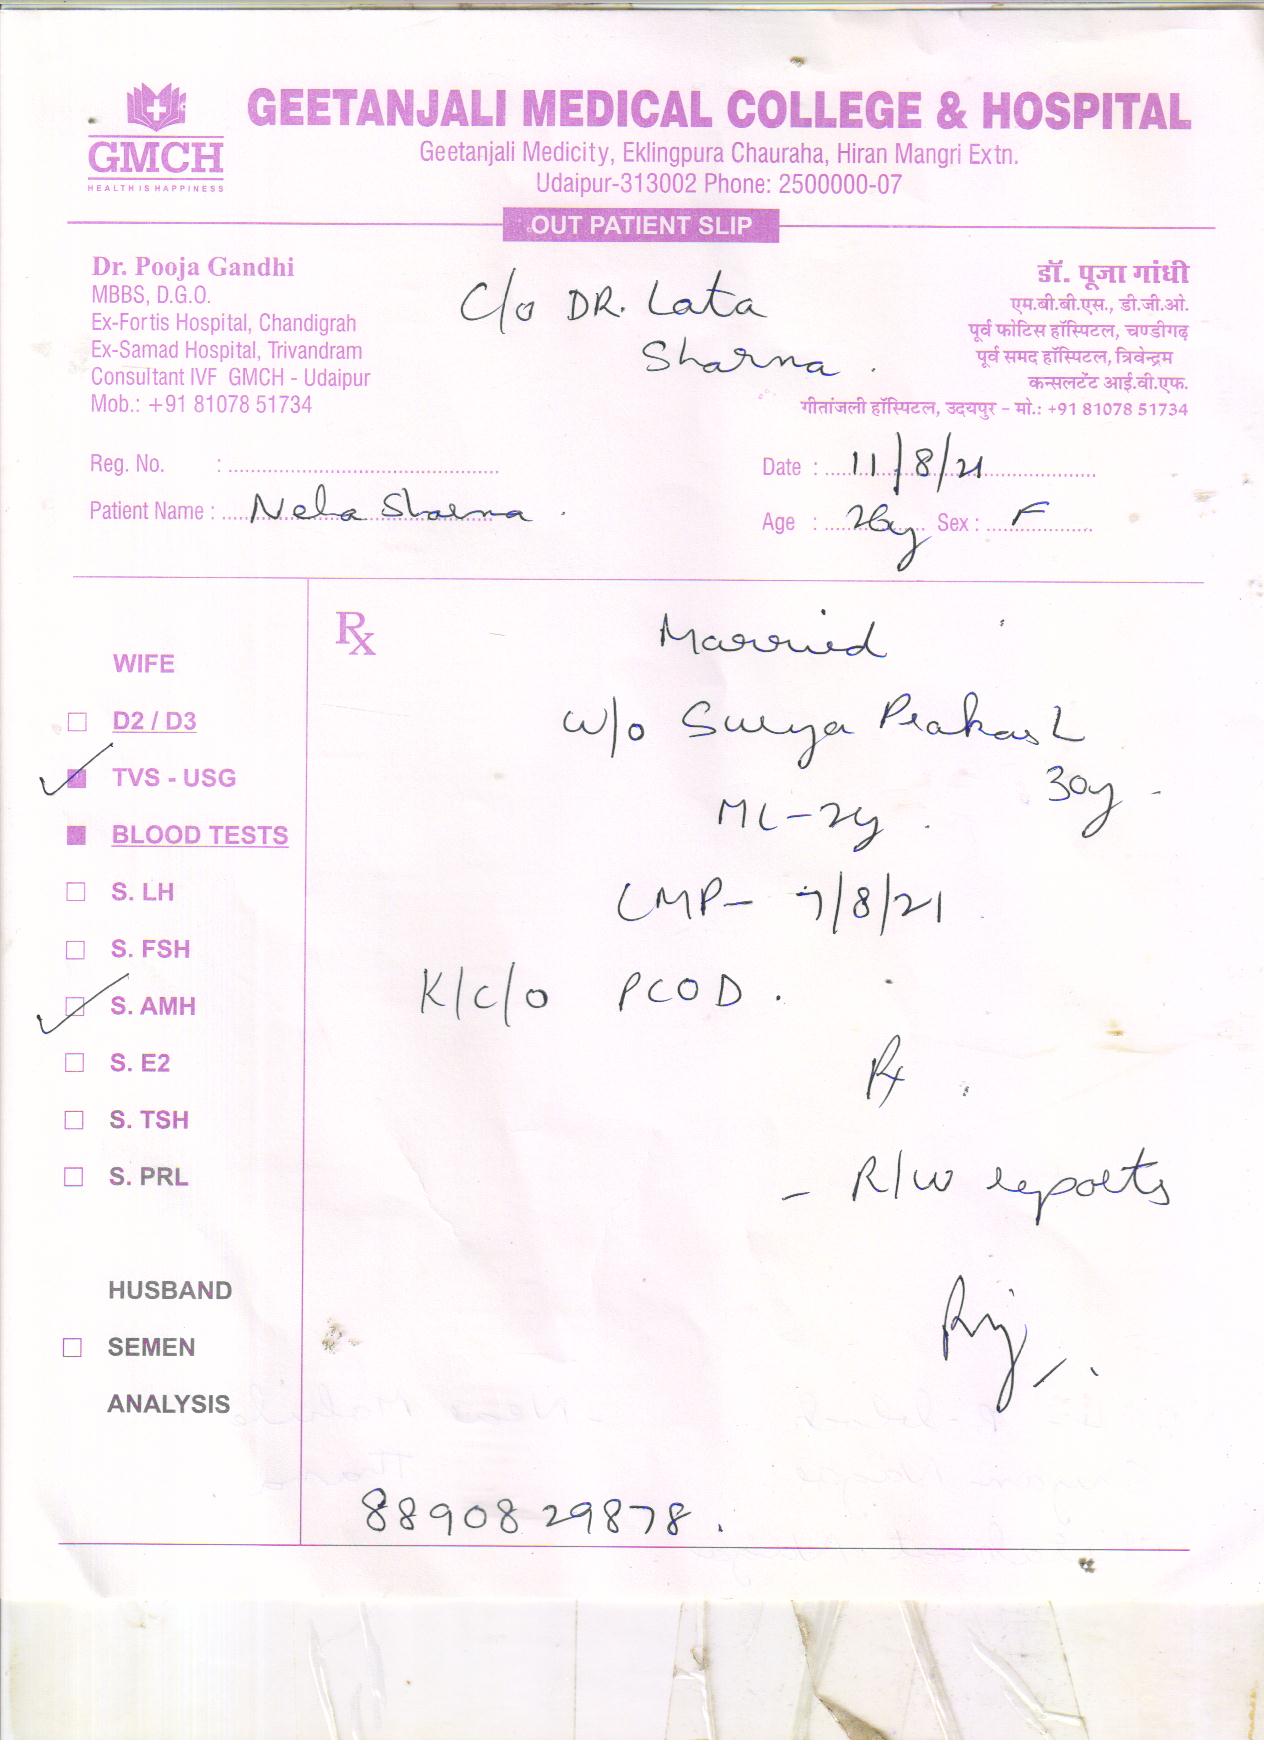 GMCH
HEALTH IS HAPPINESS
GEETANJALI MEDICAL COLLEGE & HOSPITAL
Geetanjali Medicity, Eklingpura Chauraha, Hiran Mangri Extn.
Udaipur-313002 Phone: 2500000-07
OUT PATIENT SLIP
Dr. Pooja Gandhi
MBBS, D.G.O.
Ex-Fortis Hospital, Chandigrah
Ex-Samad Hospital, Trivandram
Consultant IVF GMCH - Udaipur
Mob.: +91 81078 51734
C/o DR. Lata
Sharma.
डॉ. पूजा गांधी
एम.बी.बी.एस., डी.जी.ओ.
पूर्व फोटिस हॉस्पिटल, चण्डीगढ़
पूर्व समद हॉस्पिटल, त्रिवेन्द्रम
कन्सलटेंट आई.वी.एफ.
गीतांजली हॉस्पिटल, उदयपुर – मो.: +91 81078 51734
Reg. No. :
Date : 11/8/21
Patient Name : Neha Sharma.
Age : 26y Sex : F
WIFE
D2 / D3
TVS - USG
BLOOD TESTS
S. LH
S. FSH
S. AMH
S. E2
S. TSH
S. PRL
HUSBAND
SEMEN
ANALYSIS
Rx
Married
W/o Surya Prakash
30y.
ML-2y.
LMP- 7/8/21
K/C/O PCOD.
Rx
- R/W reports
8890829878.